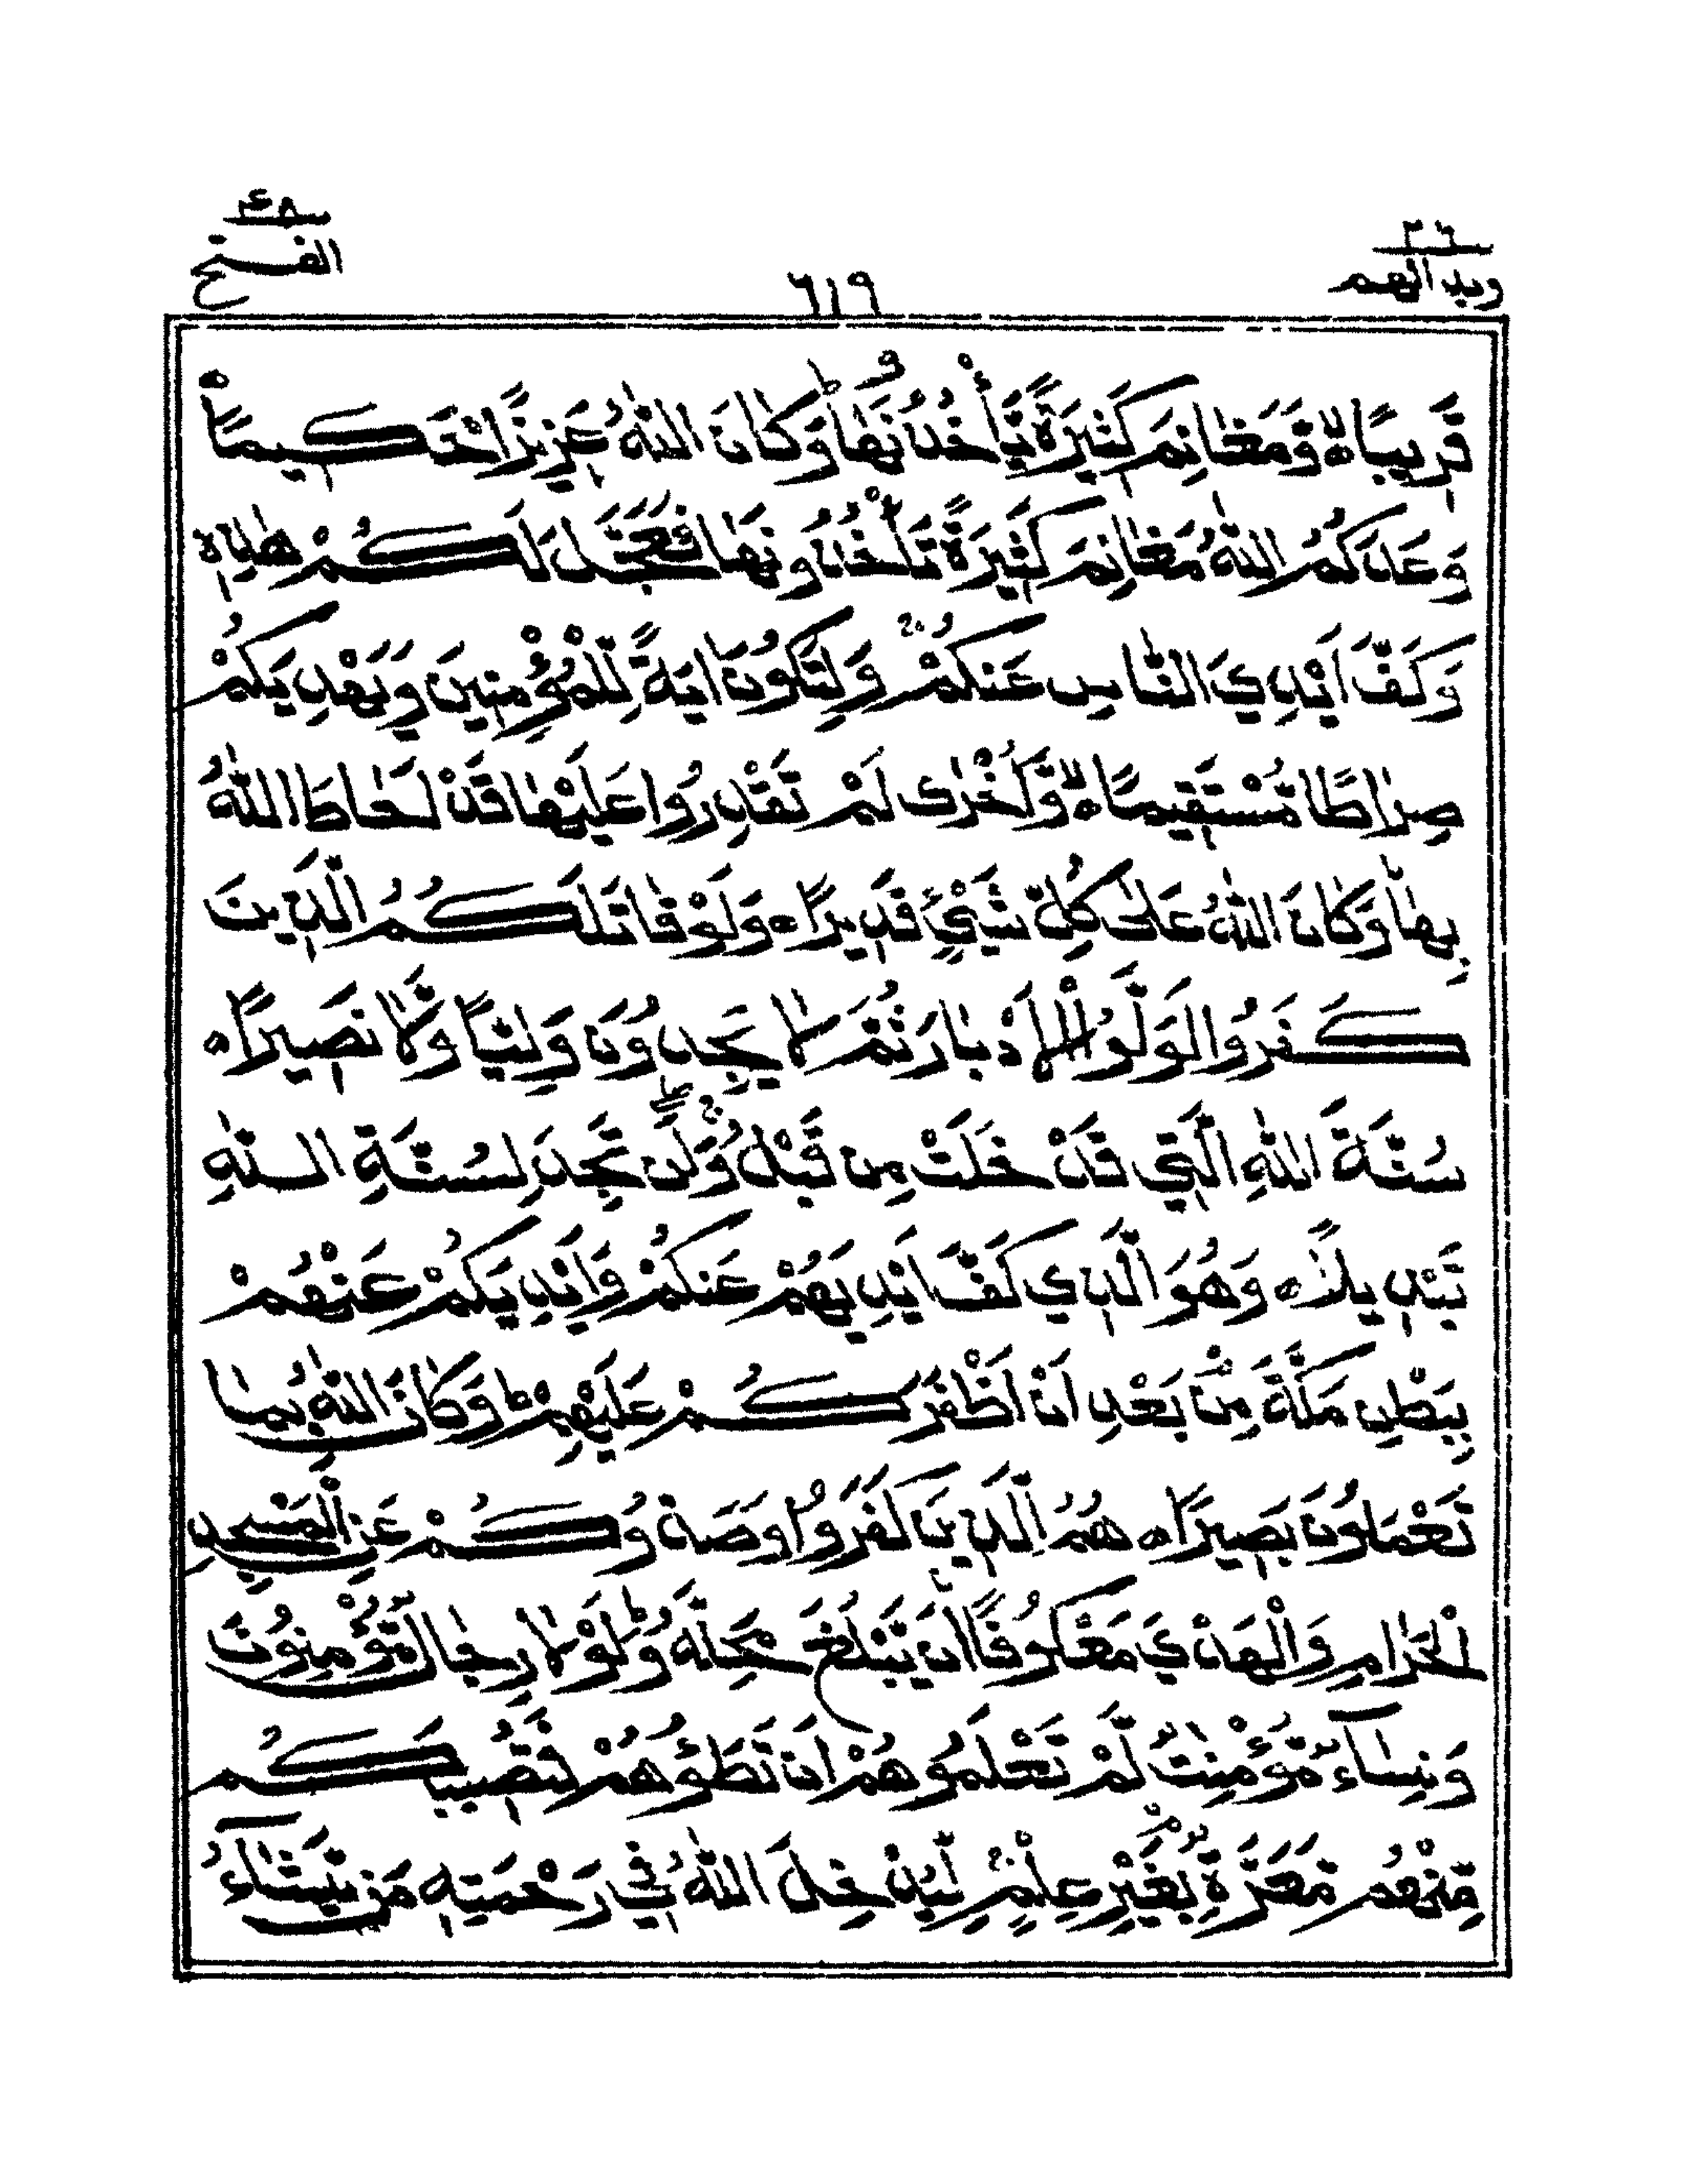 ٤٨
الفتح
٢٦
وبد الهم
٦١٩
قَرِيبًا ۙ وَّمَغَانِمَ كَثِيرَةً يَّأْخُذُونَهَا ؕ وَكَانَ اللّٰهُ عَزِيزًا حَكِيمًا
وَعَدَكُمُ اللّٰهُ مَغَانِمَ كَثِيرَةً تَأْخُذُونَهَا فَعَجَّلَ لَكُمْ هٰذِهٖ
وَكَفَّ اَيْدِيَ النَّاسِ عَنكُمْ ۚ وَلِتَكُونَ اٰيَةً لِّلْمُؤْمِنِينَ وَيَهْدِيَكُمْ
صِرَاطًا مُّسْتَقِيمًا ۙ وَّاُخْرٰى لَمْ تَقْدِرُوا عَلَيْهَا قَدْ اَحَاطَ اللّٰهُ
بِهَا ؕ وَكَانَ اللّٰهُ عَلٰى كُلِّ شَيْءٍ قَدِيرًا ه وَلَوْ قَاتَلَكُمُ الَّذِينَ
كَفَرُوا لَوَلَّوُا الْاَدْبَارَ ثُمَّ لَا يَجِدُونَ وَلِيًّا وَّلَا نَصِيرًا ه
سُنَّةَ اللّٰهِ الَّتِي قَدْ خَلَتْ مِن قَبْلُ ۚ وَلَن تَجِدَ لِسُنَّةِ اللّٰهِ
تَبْدِيلًا ه وَهُوَ الَّذِي كَفَّ اَيْدِيَهُمْ عَنكُمْ وَاَيْدِيَكُمْ عَنْهُمْ
بِبَطْنِ مَكَّةَ مِنْۢ بَعْدِ اَنْ اَظْفَرَكُمْ عَلَيْهِمْ ؕ وَكَانَ اللّٰهُ بِمَا
تَعْمَلُونَ بَصِيرًا ه هُمُ الَّذِينَ كَفَرُوا وَصَدُّوكُمْ عَنِ الْمَسْجِدِ
الْحَرَامِ وَالْهَدْيَ مَعْكُوفًا اَن يَّبْلُغَ مَحِلَّهٗ ؕ وَلَوْلَا رِجَالٌ مُّؤْمِنُونَ
وَنِسَآءٌ مُّؤْمِنٰتٌ لَّمْ تَعْلَمُوهُمْ اَن تَطَـُٔوهُمْ فَتُصِيبَكُم
مِّنْهُم مَّعَرَّةٌۢ بِغَيْرِ عِلْمٍ ۚ لِيُدْخِلَ اللّٰهُ فِي رَحْمَتِهٖ مَن يَّشَآءُ